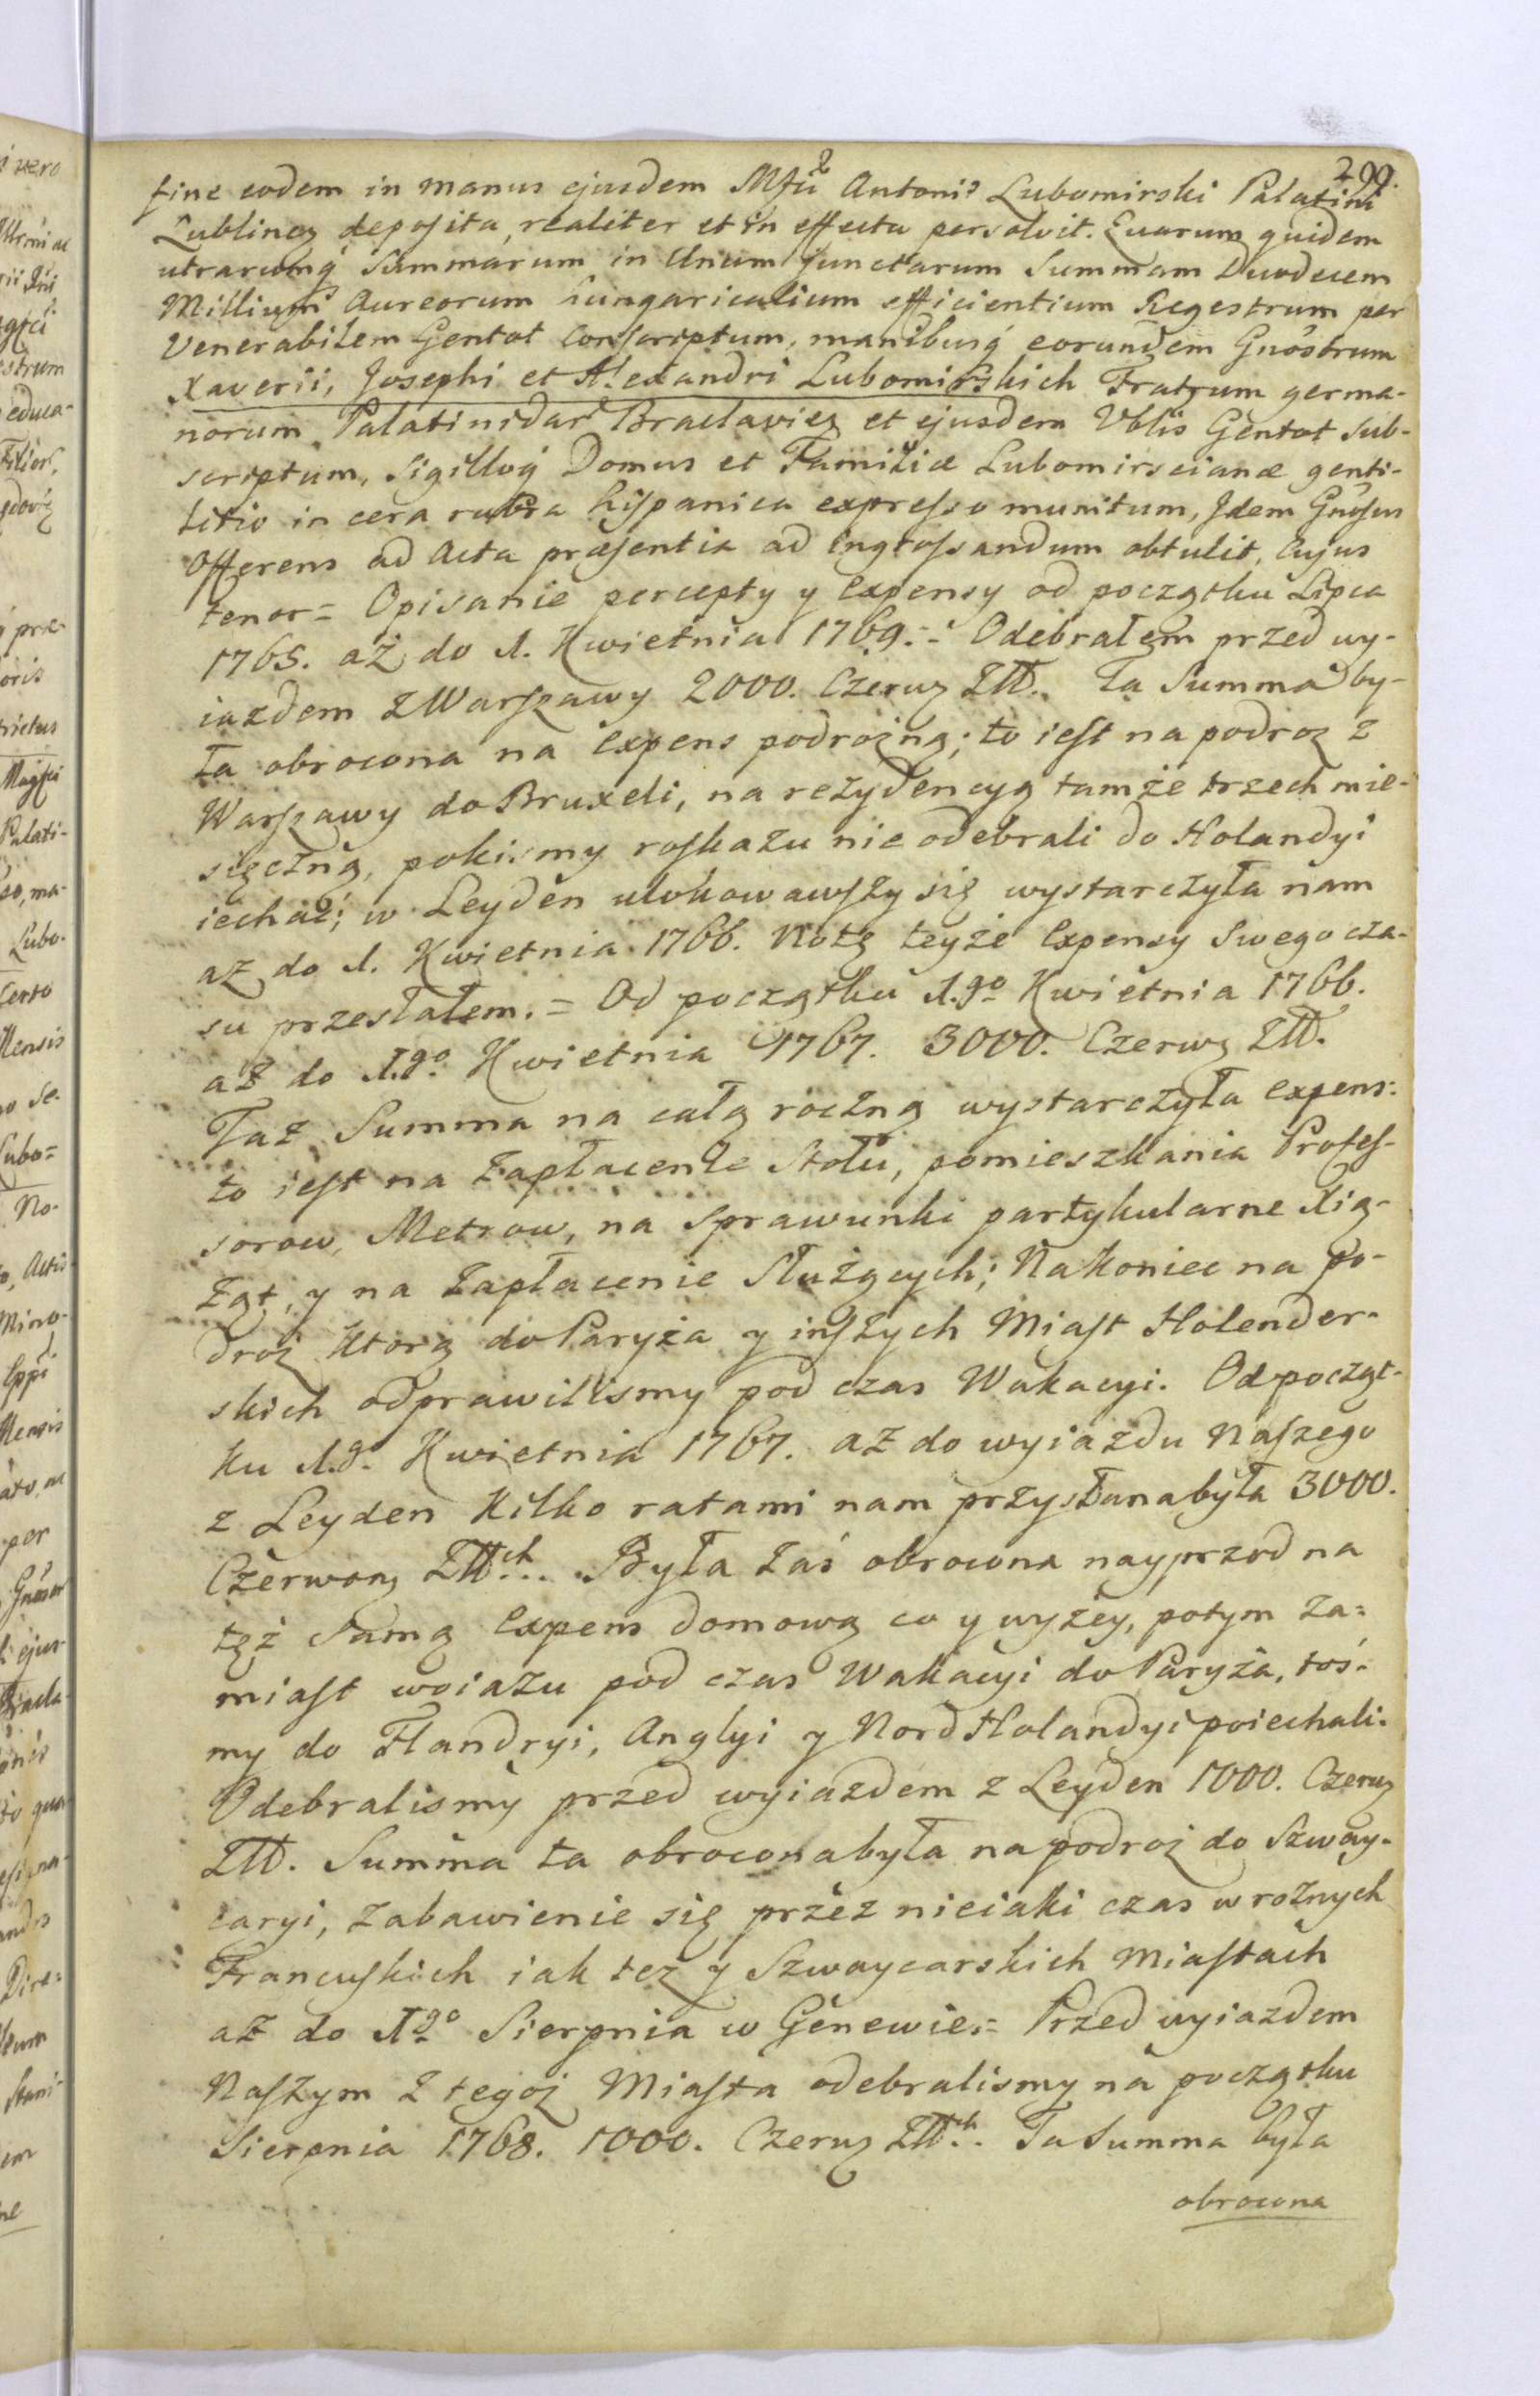 299.
fine eodem in manus ejusdem Mfci Antonii Lubomirski Palatini
Lublinen deposita, realiter et in effectu persolvit. Quarum quidem
utrarumq summarum in Unum junctarum Summam Duodecem
Millium Aureorum hungaricalium efficientium Regestrum per
Venerabilem Gentot conscriptum, manibusq eorundem Gnosorum
Xaverii, Josephi et Alexandri Lubomirskich Fratrum germa-
norum Palatinidar Braclavien et ejusdem Vblis Gentot sub-
scriptum, Sigilloq Domus et Familiæ Lubomirscianæ genti-
litio in cera rubra hispanica expresso munitum, Idem Gnosus
Offerens ad Acta præsentia ad ingrossandum obtulit, Cujus
tenor = Opisanie percepty y Expensy od początku Lipca
1765. aż do 1. Kwietnia 1769. = Odebrałem przed wy-
iazdem z Warszawy 2000. Czerwz Złł. Ta Summa by-
ła obrocona na Expens podrożną; to iest na podroz z
Warszawy do Bruxeli, na rezydencyą tamże trzech mie-
sięczną, pokismy roskazu nie odebrali do Holandyi
iechać; w Leyden ulokowawszy się wystarczyła nam
aż do 1. Kwietnia 1766. Notę teyże Expensy Swego cza-
su przesłałem. = Od początku 1.go Kwietnia 1766.
aż do 1.go Kwietnia 1767. 3000. Czerwz Złł.
Taż Summa na całą roczną wystarczyła Expens:
to iest na Zapłacenie Stołu, pomieszkania Profes-
sorow, Metrow, na Sprawunki partykularne Xią-
żąt, y na Zapłacenie Służących; Nakoniec na po-
droż którą do Paryża y inszych Miast Holender-
skich odprawilismy pod czas Wakacyi. Od począt-
ku 1.g. Kwietnia 1767. aż do wyiazdu Naszego
z Leyden Kilko ratami nam przysłana była 3000.
Czerwonz Złłch. Była zaś obrocona nayprzod na
tęż Samą Expens domową co y wyżey, potym za=
miast woiazu pod czas Wakacyi do Paryża, toś-
my do Flandryi, Anglyi y Nord Holandyi poiechali.
Odebralismy przed wyiazdem z Leyden 1000. Czerwz
Złł. Summa ta obrocona była na podroż do Szway-
caryi, Zabawienie się przez nieiaki czas w rożnych
Francuskich iak tez y Szwaycarskich Miastach
aż do 1go Sierpnia w Genewie. = Przed wyiazdem
Naszym z tegoż Miasta odebralismy na początku
Sierpnia 1768. 1000. Czerwz Złłch. Ta Summa była
obrocona